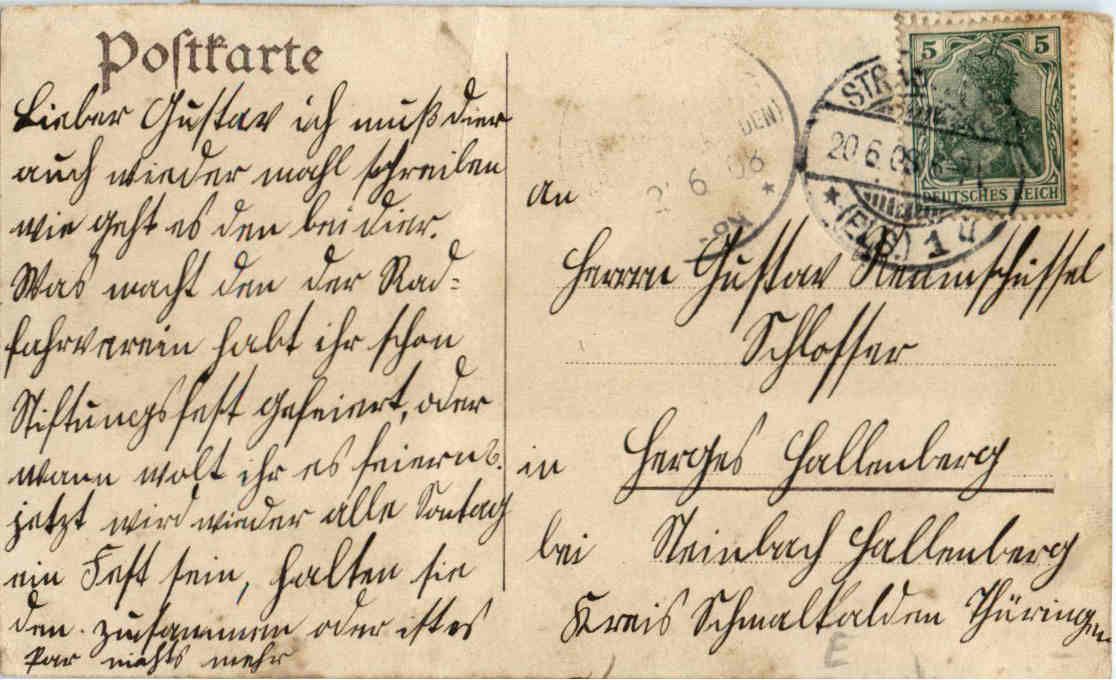 Postkarte
Lieber Gustav ich muß dier
auch wieder mahl schreiben
wie geht es den bei dier.
Was macht den der Rad=
fahrverein habt ihr schon
Stiftungsfest gefeiert, oder
wann wolt ihr es feiern
jetzt wird wieder alle Sontag
ein Fest sein, halten sie
den zusammen oder ist es
gar nichts mehr
DEN)
6 06
STRA
20 6 06
(ELS.) 1 u
5 5
DEUTSCHES REICH
An
Herrn Gustav Reumschüssel
Schlosser
in Herges Hallenberg
bei Steinbach Hallenberg
Kreis Schmalkalden Thüringen
E